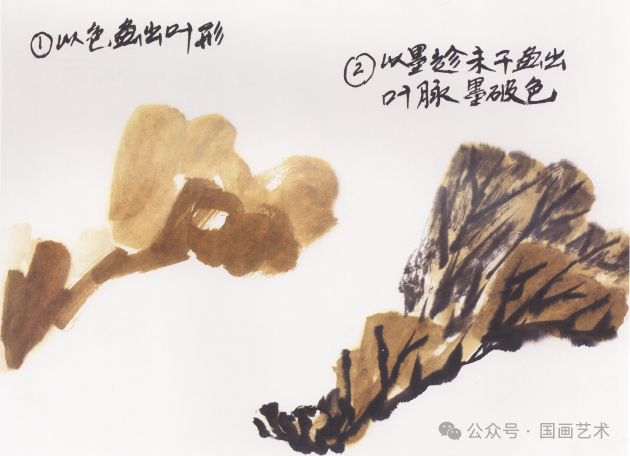 ①以色画出叶形
②以墨趁未干画出
叶脉 墨破色
公众号·国画艺术